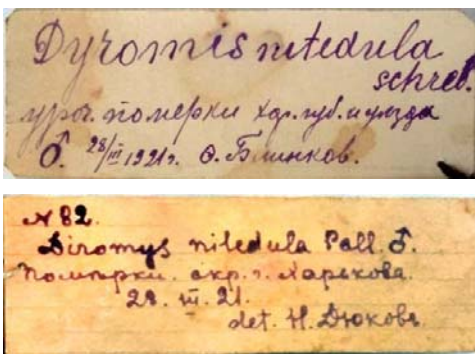 Dyromis nitedula
schreb.
уроч. померки хар. губ. и уезда
♂. 28/III 1921 г. Ѳ. Блинков.
N 82.
Diromys nitedula Pall ♂.
Помѣрки. окр. г. Харькова.
28. III. 21.
det. Н. Дюкова